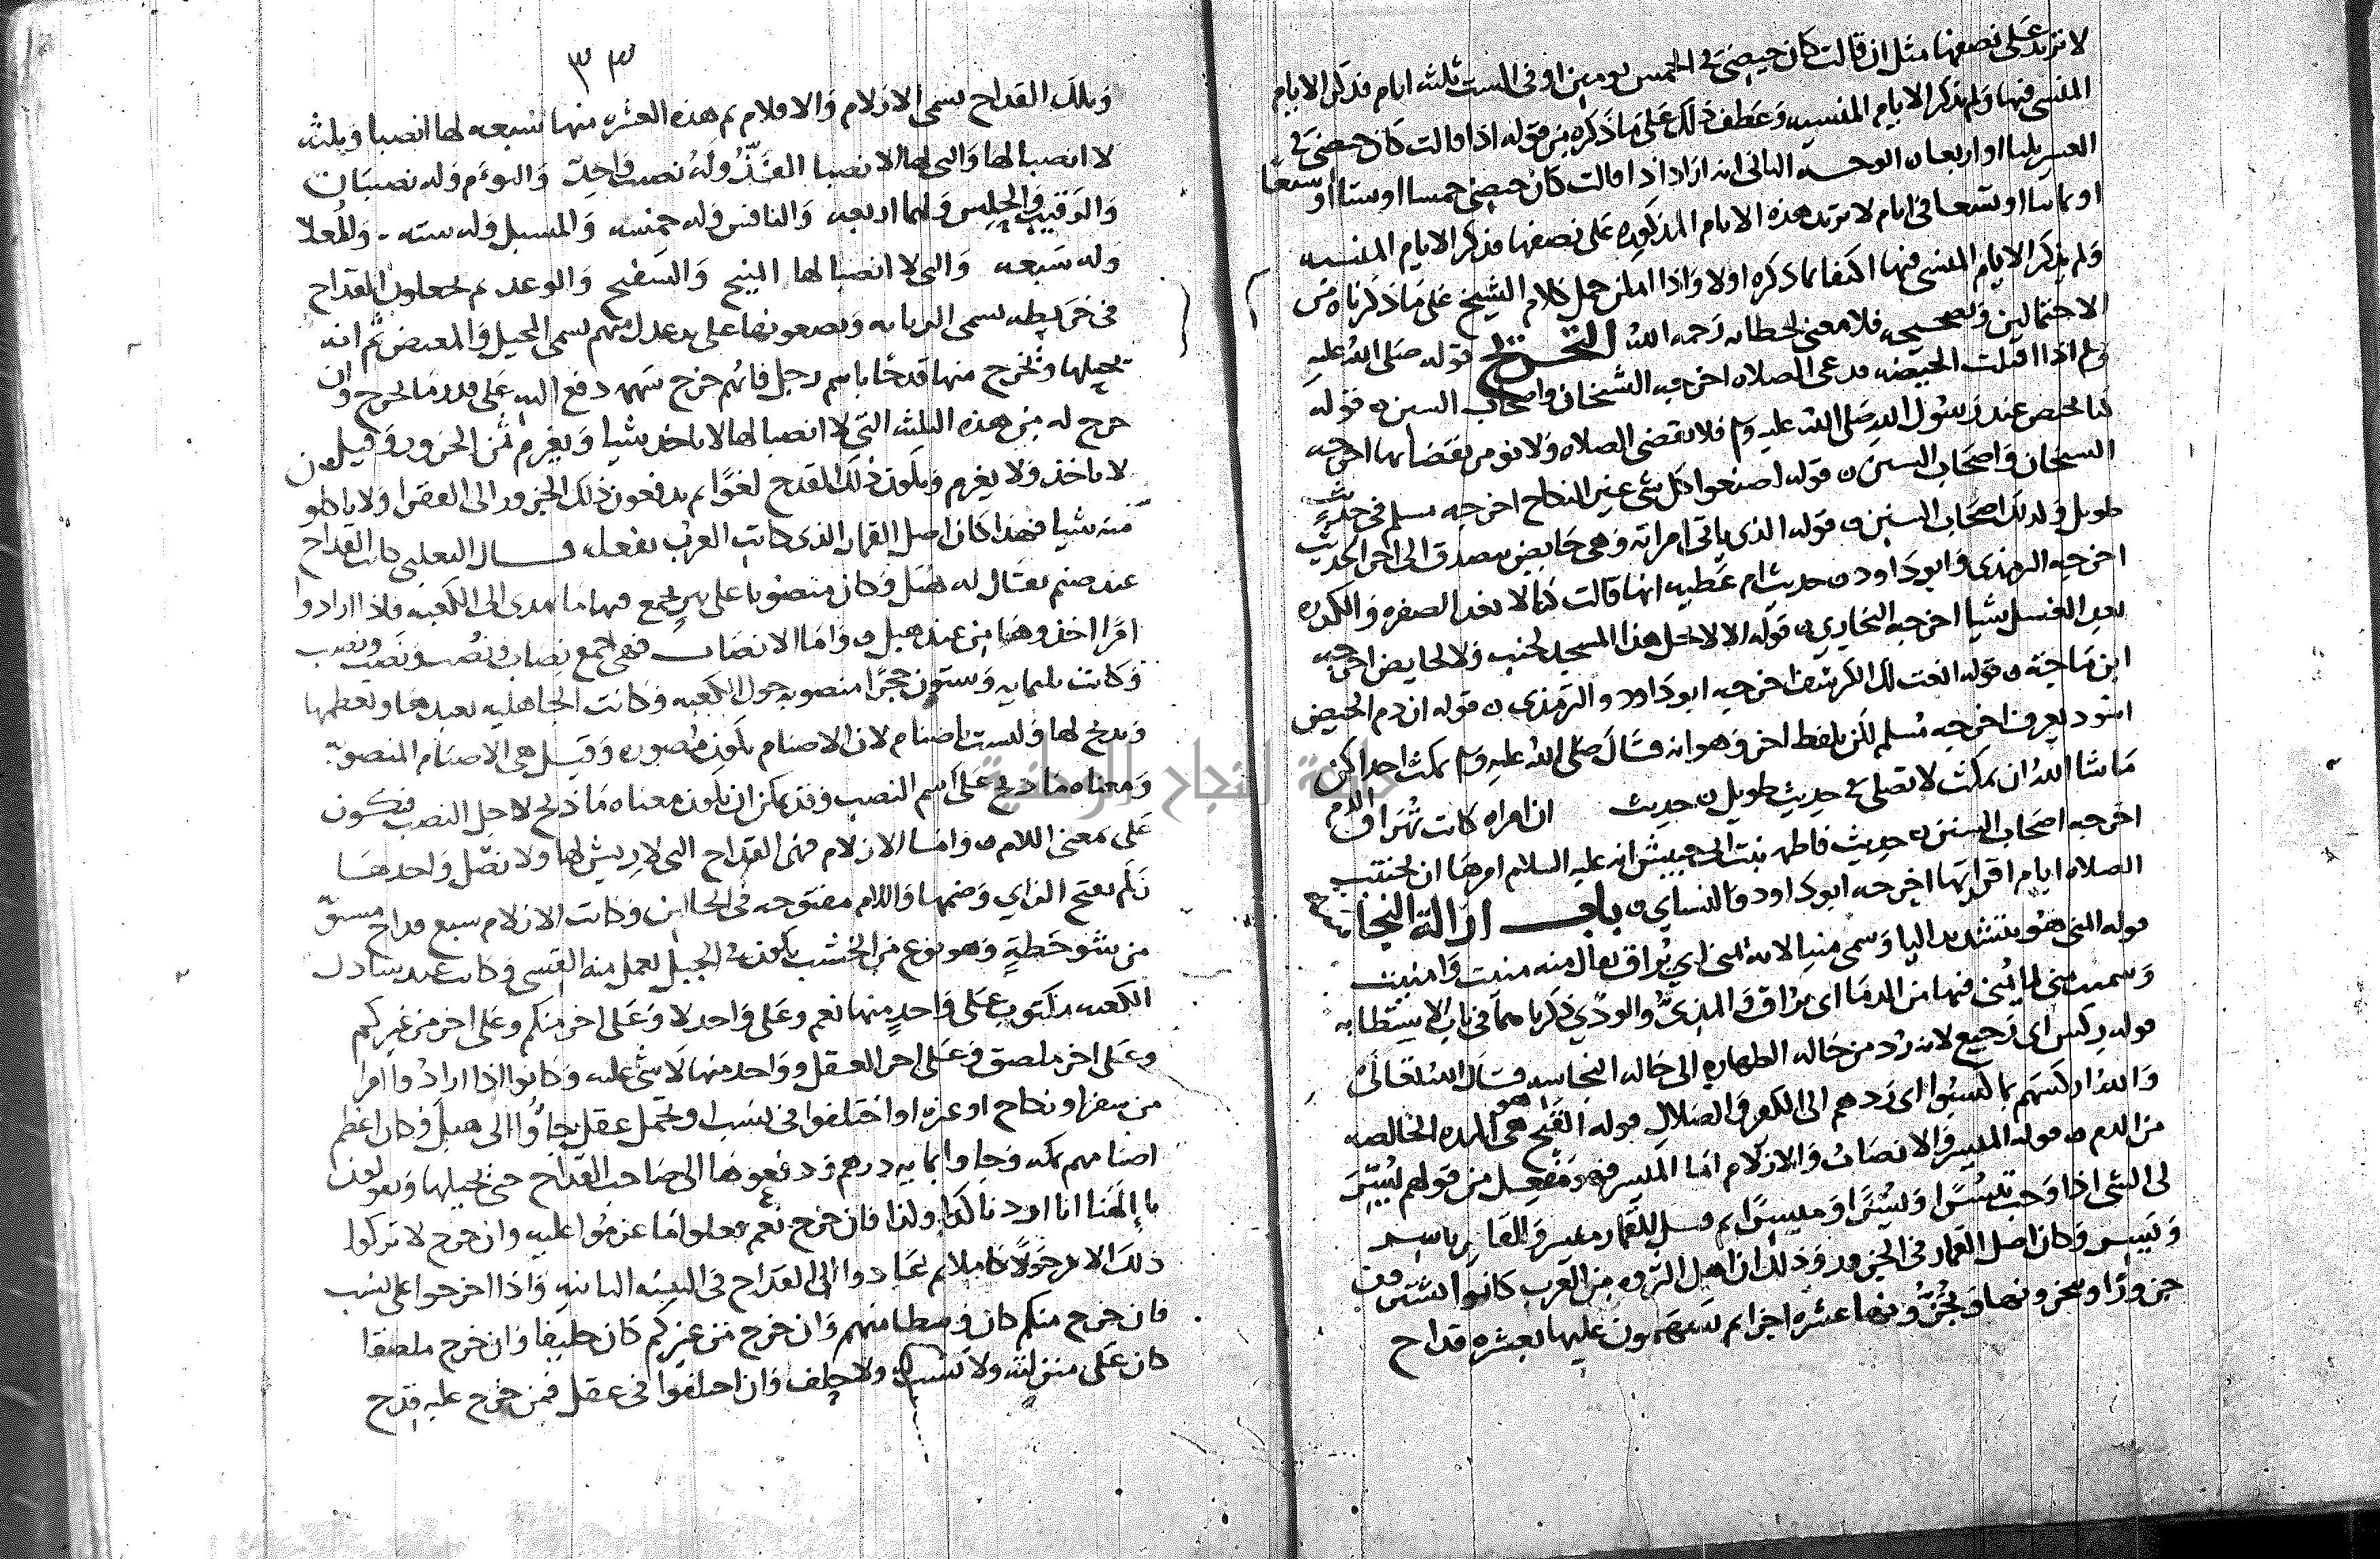 لا تزيد على نصفها مثل ان قالت كان حيضتي في الخمس يومين او في الست ثلثه ايام فذكر الايام
المنسي فيها ولم يذكر الايام المنسيه وعطف ذلك على ما ذكره من قوله اذا قالت كان حيضتي في
العشر ثلثا او اربعا ن الوجه الثاني انه اراد اذا قالت كان حيضتي خمسا او ستا او سبعا
او ثمانيا او تسعا في ايام لا تزيد هذه الايام المذكوره على نصفها فذكر الايام المنسيه
ولم يذكر الايام المنسي فيها اكتفا بما ذكره اولا واذا امكن حمل كلام الشيخ على ما ذكرناه من
الاحتمالين وتصحيحه فلا معنى لخطائه رحمه الله التخريج قوله صلى الله عليه
وسلم اذا اقبلت الحيضه فدعي الصلاه اخرجه الشيخان واصحاب السنن ن قوله
كنا نحيض عند رسول الله صلى الله عليه وسلم فلا نقضي الصلاه ولا نومر بقضائها اخرجه
الشيخان واصحاب السنن ن قوله اصنعوا كل شي غير النكاح اخرجه مسلم في حديث
طويل وكذلك اصحاب السنن ن قوله الذي ياتي امراته وهي حايض يتصدق الى اخر الحديث
اخرجه الترمذي وابو داود ن حديث ام عطيه انها قالت كنا لا نعد الصفره والكدره
بعد الغسل شيا اخرجه البخاري ن قوله الا لا يحل هذا المسجد لجنب ولا لحايض اخرجه
ابن ماجة ن قوله انعت لك الكرسف اخرجه ابو داود والترمذي ن قوله ان دم الحيض
اسود يعرف اخرجه مسلم لكن بلفظ اخر وهو انه قال صلى الله عليه وسلم تمكث احداكن
ما شا الله ان تمكث لا تصلي في حديث طويل ن حديث ان امراه كانت تهراق الدم
اخرجه اصحاب السنن ن حديث فاطمه بنت ابي حبيش انه عليه السلام امرها ان تجتنب
الصلاه ايام اقرايها اخرجه ابو داود والنساي ن باب ازالة النجاسة
قوله المني هو بتشديد اليا وسمي منيا لانه يمنى اي يراق يقال منه منيت وامنيت
وسميت منى لما يمنى فيها من الدما اي يراق والمذي والودي ذكرناهما في باب الاستطابه
قوله ركس اي رجيع لانه رد من حاله الطهاره الى حاله النجاسه قال الله تعالى
والله اركسهم بما كسبوا اي ردهم الى الكفر والضلال قوله القيح هو هي المده الخالصه
من الدم ن قوله الميسر والانصاب والازلام اما الميسر فهو مفعل من قولهم يسر
لي الشي اذا وجب ييسر يسرا وميسرا ثم قيل للقمار ميسر والقامر ياسر
ويسر وكان اصل القمار في الجزور وذلك ان اهل الثروه من العرب كانوا يشترون
جزورا وينحرونها ويجزونها عشره اجزا ثم يسهمون عليها بعشره قداح
٣٣
وتلك القداح تسمى الازلام والاقلام ثم هذه العشره منها سبعه لها انصبا وثلثه
لا انصبا لها والتي لها الانصبا الفذ وله نصيب واحد والتوءم وله نصيبان
والرقيب والحلس ولهما اربعه والنافس وله خمسه والمسبل وله سته والمعلا
وله سبعه والتي لا انصبا لها المنيح والسفيح والوغد ثم يجعلون القداح
في خريطه تسمى الربابه ويضعونها على يد عدل منهم يسمى المجيل والمفيض ثم انه
يجيلها ويخرج منها قدحا باسم رجل فايهم خرج سهمه دفع اليه على قدر ما يخرج وان
خرج له من هذه الثلثه التي لا انصبا لها لا ياخذ شيا ويغرم ثمن الجزور وقيل من
لا ياخذ ولا يغرم ويكون ذلك القدح لغوا ثم يدفعون ذلك الجزور الى الفقرا ولا ياكلو
منه شيا فهذا كان اصل القمار الذي كانت العرب تفعله قال الثعلبي كانت القداح
عند صنم يقال له هبل وكان منصوبا على بير يجمع فيها ما يهدى الى الكعبه فاذا ارادوا
امرا اخذوها من عند هبل ن واما الانصاب فهي جمع نصاب ونصب ونصب ونصب
وكانت ثلثمايه وستون حجرا منصوبه حول الكعبه وكانت الجاهليه تعبدها وتعظمها
وتذبح لها وليست باصنام لان الاصنام تكون مصوره وقيل هي الاصنام المنصوبة
ومعناه ما ذبح على اسم النصب وقد يمكن ان يكون معناه ما ذبح لاجل النصب فيكون
على معنى اللام ن واما الازلام فهي القداح التي لا ريش لها ولا نصل واحدها
زلم بفتح الزاي وضمها واللام مفتوحه في الحالين وكانت الازلام سبع قداح مستوية
من شوحطة وهو نوع من الخشب يكون في الجبل يعمل منه القسي وكانت عند سادن
الكعبه مكتوب على واحد منها نعم وعلى واحد لا وعلى اخر منكم وعلى اخر من غيركم
وعلى اخر ملصق وعلى اخر العقل وواحد منها لا شي عليه وكانوا اذا ارادوا امرا
من سفر او نكاح او غزه او اختلفوا في نسب او تحمل عقل جاوا الى هبل وكان اعظم
اصنامهم بمكه وجاوا بمايه درهم ودفعوها الى صاحب القداح حتى يجيلها ويقولون
يا إلهنا انا اردنا كذا وكذا فان خرج نعم فعلوا ما عزموا عليه وان خرج لا تركوا
ذلك الامر حولا كاملا ثم عادوا الى القداح في السنه الثانيه واذا اخرجوا على نسب
فان خرج منكم كان وسطا منهم وان خرج من غيركم كان حليفا وان خرج ملصقا
كان على منزلته ولا نسب ولا حلف وان اختلفوا في عقل فمن خرج عليه قدح